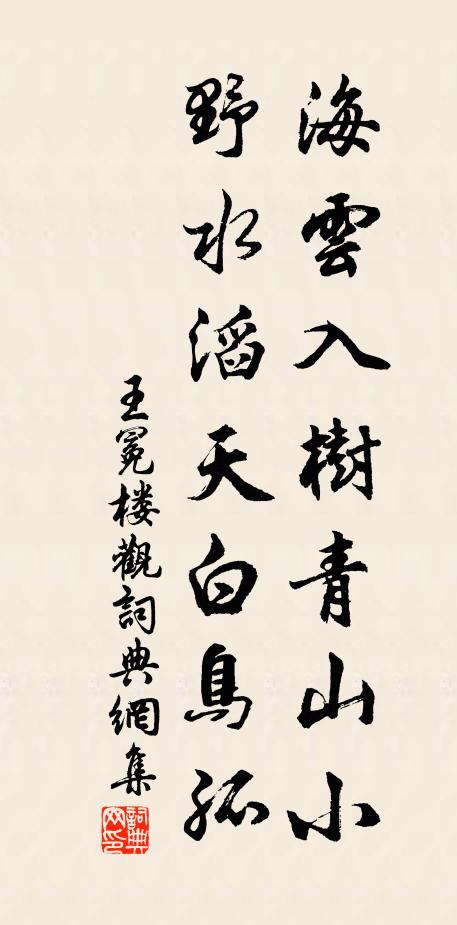 海雲入樹青山小
野水滔天白鳥孤
王冕楼觀詞典網集
詞典网印